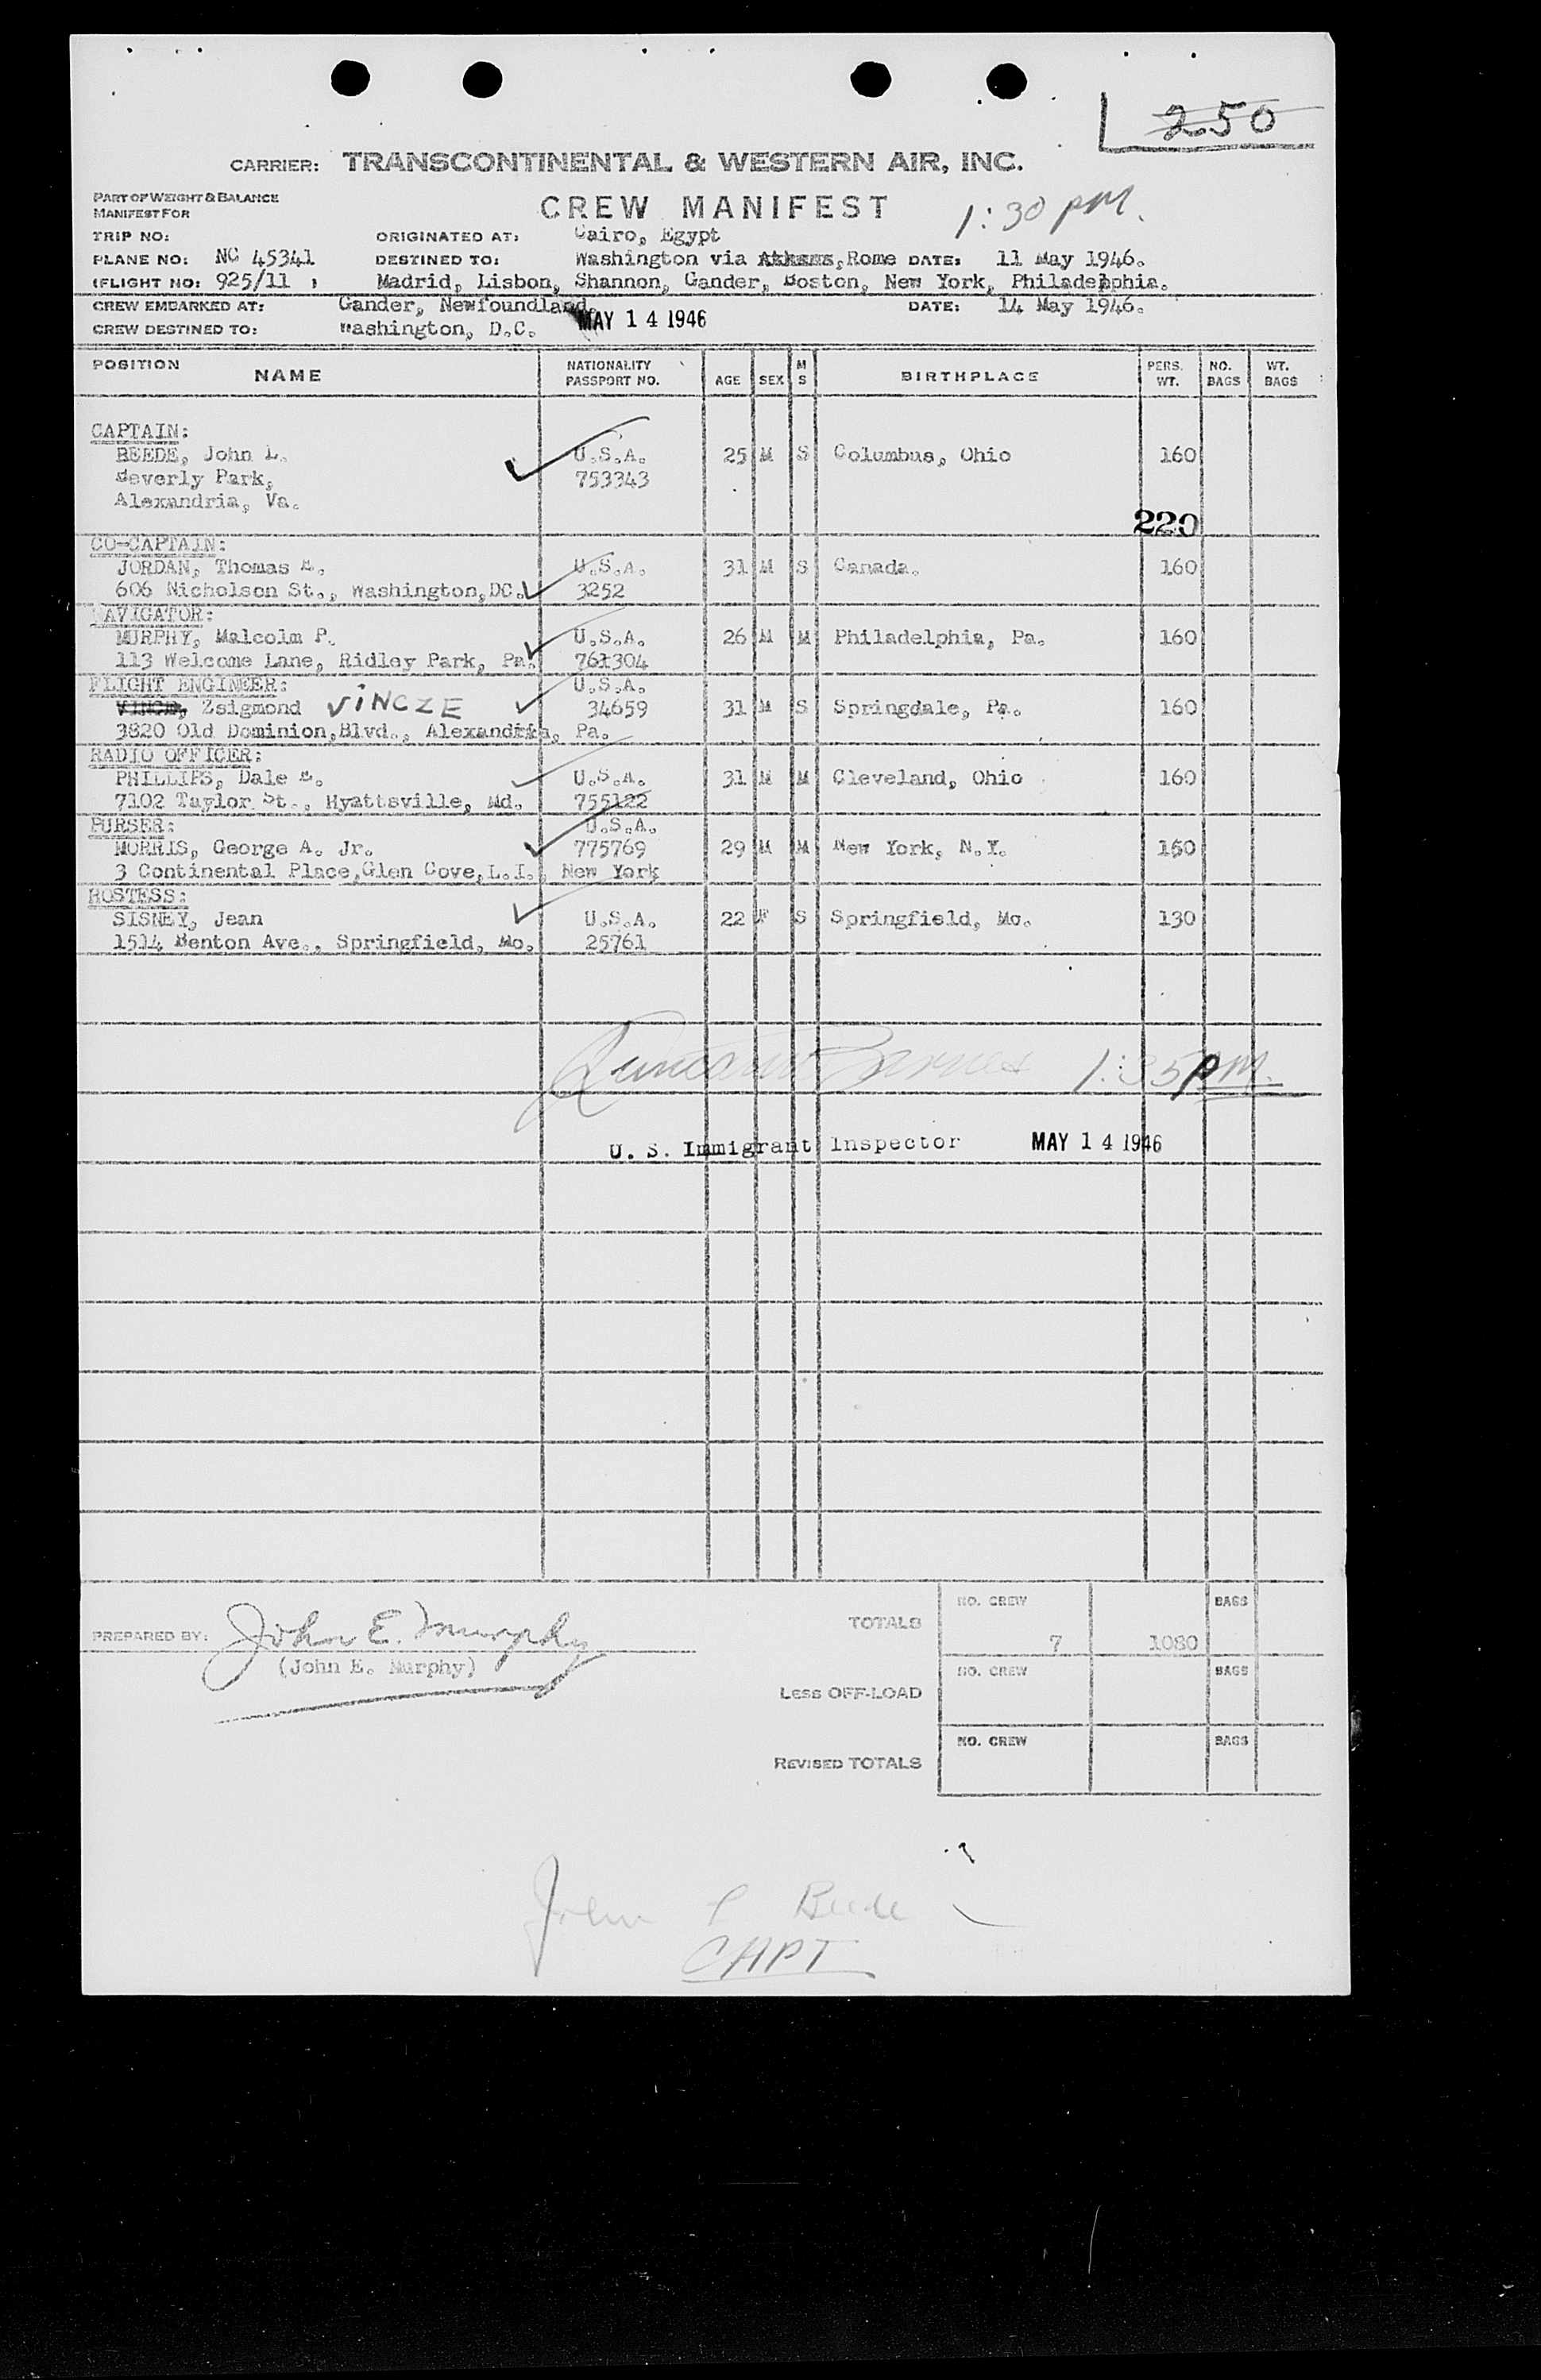 250
CARRIER: TRANSCONTINENTAL & WESTERN AIR, INC.
PART OF WEIGHT & BALANCE
MANIFEST FOR
CREW MANIFEST 1:30 PM.
TRIP NO: ORIGINATED AT: Cairo, Egypt
PLANE NO: NC 45341 DESTINED TO: Washington via Athens, Rome DATE: 11 May 1946.
(FLIGHT NO: 925/11 ) Madrid, Lisbon, Shannon, Gander, Boston, New York, Philadephhia.
CREW EMBARKED AT: Gander, Newfoundland. DATE: 14 May 1946.
CREW DESTINED TO: Washington, D.C. MAY 14 1946
POSITION NAME NATIONALITY PASSPORT NO. AGE SEX M S BIRTHPLACE PERS. WT. NO. BAGS WT. BAGS
CAPTAIN:
BEEDE, John L. U.S.A. 25 M S Columbus, Ohio 160
Beverly Park, 753343
Alexandria, Va.
220
CO-CAPTAIN:
JORDAN, Thomas E. U.S.A. 31 M S Canada. 160
606 Nicholson St., Washington,DC. 3252
NAVIGATOR:
MURPHY, Malcolm P. U.S.A. 26 M M Philadelphia, Pa. 160
113 Welcome Lane, Ridley Park, Pa. 761304
FLIGHT ENGINEER: U.S.A.
Zsigmond VINCZE 34659 31 M S Springdale, Pa. 160
3820 Old Dominion,Blvd., Alexandria, Pa.
RADIO OFFICER:
PHILLIPS, Dale E. U.S.A. 31 M M Cleveland, Ohio 160
7102 Taylor St., Hyattsville, Md. 755122
PURSER: U.S.A.
MORRIS, George A. Jr. 775769 29 M M New York, N.Y. 150
3 Continental Place,Glen Cove,L.I. New York
HOSTESS:
SISNEY, Jean U.S.A. 22 F S Springfield, Mo. 130
1514 Benton Ave., Springfield, Mo. 25761
1:35 PM.
U. S. Immigrant Inspector MAY 14 1946
PREPARED BY: John E. Murphy
(John E. Murphy)
TOTALS NO. CREW 7 1080 BAGS
Less OFF-LOAD NO. CREW BAGS
REVISED TOTALS NO. CREW BAGS
John L Beede
CAPT